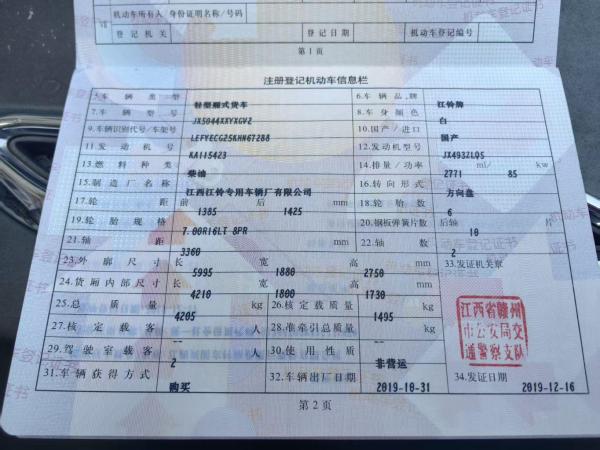 机动车所有人 身份证明名称/号码
VII
登记机关 登记日期 机动车登记编号
第1页
注册登记机动车信息栏
5.车辆类型 轻型厢式货车 6.车辆品牌 江铃牌
7.车辆型号 JX5044XXYXGV2 8.车身颜色 白
9.车辆识别代号/车架号 LEFYECG25KHN67288 10.国产/进口 国产
11.发动机号 KA115423 12.发动机型号 JX493ZLQ5
13.燃料种类 柴油 14.排量/功率 2771 ml/ 85 kw
15.制造厂名称 江西江铃专用车辆厂有限公司 16.转向形式 方向盘
17.轮距 前 1385 后 1425 mm 18.轮胎数 6
19.轮胎规格 7.00R16LT 8PR 20.钢板弹簧片数 后轴 10 片
21.轴距 3360 mm 22.轴数 2
23.外廓尺寸 长 5995 宽 1880 高 2750 mm 33.发证机关章
24.货厢内部尺寸 长 4210 宽 1800 高 1730 mm
25.总质量 4205 kg 26.核定载质量 1495 kg
27.核定载客 -- 人 28.准牵引总质量 -- kg
29.驾驶室载客 2 人 30.使用性质 非营运
31.车辆获得方式 购买 32.车辆出厂日期 2019-10-31 34.发证日期 2019-12-16
江西省赣州
市公安局交
通警察支队
第2页